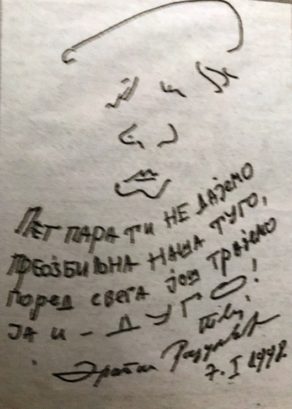 Пет пара ти не дајемо
преозбиљна наша туго,
поред свега још трајемо
ја и - Д У Г О !
Твој
7. I 1998.